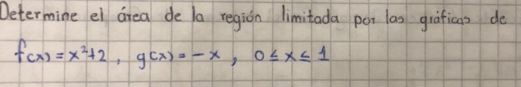 Determine el área de la región limitada por las gráficas de
f(x) = x²+2, g(x) = -x, 0 ≤ x ≤ 1